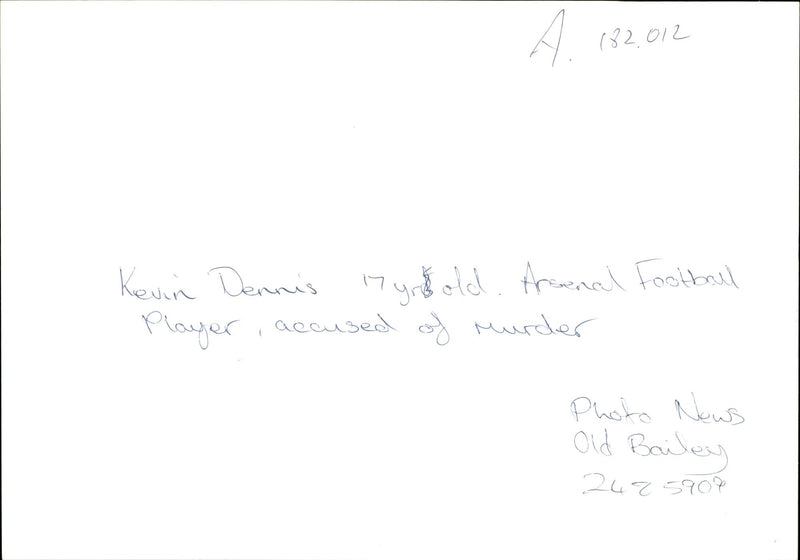 A. 182.012
Kevin Dennis 17 yr old. Arsenal Football
Player, accused of murder
Photo News
Old Bailey
242 5909